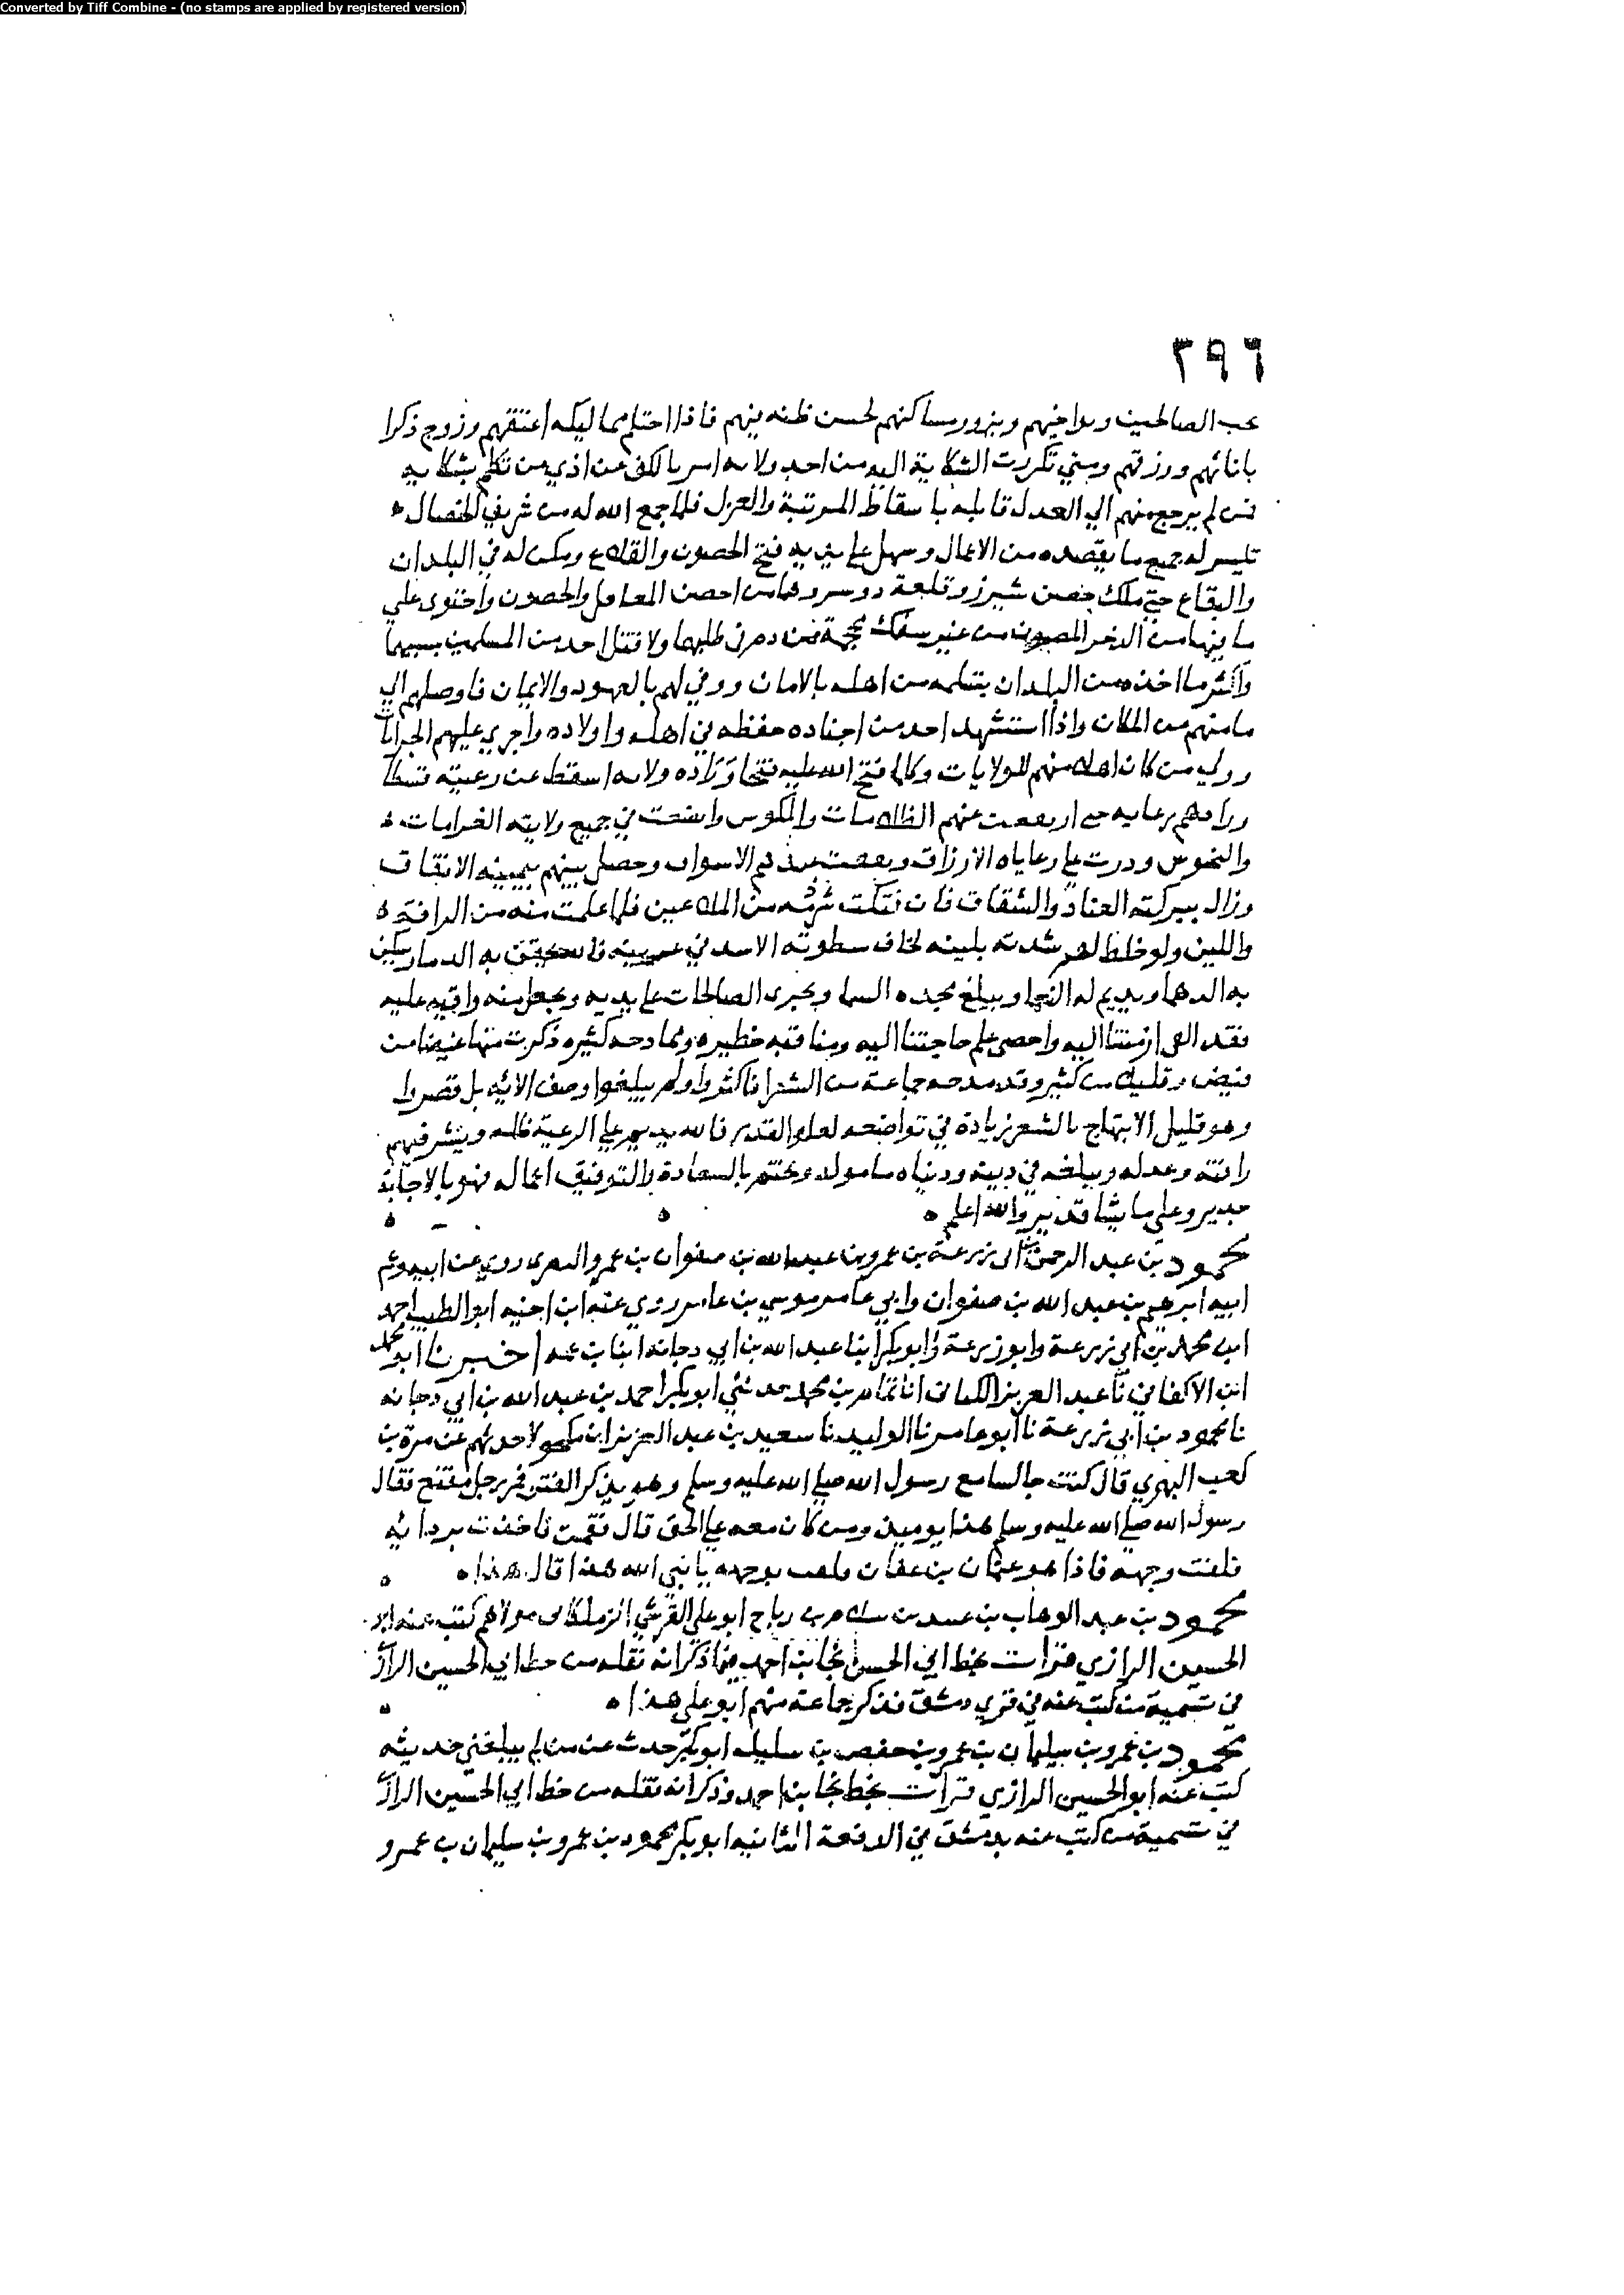 Converted by Tiff Combine - (no stamps are applied by registered version)
٢٩٦
يحب الصالحين ويواخيهم ويزور مساكنهم لحسن ظنه فيهم فاذا احتلم مماليكه اعتقهم وزوج ذكرا
باناثهم ورزقهم ومتي تكررت الشكاية اليه من احد ولاته امر بالكف عن اذي من تكلم بشكايه
فمن لم يرجع منهم الي العدل قابله باسقاط المرتبة والعزل فلما جمع الله له من شريف الخصال ه
تيسر له جميع ما يقصده من الاعمال وسهل علي يديه فتح الحصون والقلاع ومكن له في البلدان
والبقاع حتي ملك حصن شيزر وقلعة دوسر وهما من احصن المعاقل والحصون واحتوى علي
ما فيهما من الذخر المصون من غير سفك محجمة من دم في طلبهما ولا قتل احد من المسلمين بسببهما
واكثر ما اخذه من البلدان بتسلمه من اهله بالامان ووفي لهم بالعهود والايمان فاوصلهم الي
مامنهم من المكان واذا استشهد احد من اجناده حفظه في اهله واولاده واجري عليهم الجرايات
وولي من كان اهلا منهم للولايات وكلما فتح الله عليه فتحا وزاده ولايه اسقط عن رعيته قسطا
وزادهم رعايه حتى ارتفعت عنهم الظلامات والمكوس واتضعت في جميع ولايته الغرامات ه
والنحوس ودرت علي رعاياه الارزاق ونفقت عندهم الاسواق وحصل بينهم بيمينه الاتفاق
وزال ببركته العناد والشقاق فان فتكت شرذمه من الملاعين فلما علمت منه من الرافة ه
واللين ولو خلط لهم شدته بلينه لخاف سطوته الاسد في عرينه فالله يحقن به الدما ويسكن
به الدهما ويديم له النعما ويبلغ مجده السما ويجرى الصالحات علي يديه ويجعل منه واقيه عليه
فقد القى ازمتنا اليه واحصى علم حاجتنا اليه ومناقبه خطيره وممادحه كثيره ذكرت منها غيضا من
فيض وقليلا من كثير وقد مدحه جماعة من الشعرا فاكثروا ولم يبلغوا وصف الائه بل قصروا
وهو قليل الابتهاج بالشعر زيادة في تواضعه لعلو القدر فالله يديم علي الرعية ظله وينشر فيهم
رافته وعدله ويبلغه في دينه ودنياه مامولده ويختم بالسعادة والتوفيق اعماله فهو بالاجابة
جدير وعلى ما يشا قدير والله اعلم ه
محمود بن عبد الرحمن ابى زرعة بن عمرو بن عبد الله بن صفوان بن عمرو النصرى روي عن ابيه وعم
ابيه ابرهيم بن عبد الله بن صفوان وابي عامر موسي بن عامر روي عنه ابن اخيه ابو الطيب احمد
ابن محمد بن ابي زرعة وابو زرعة وابو بكر ابنا عبد الله بن ابي دجانه ابنا بن عمه اخبرنا ابو محمد
ابن الاكفاني نا عبد العزيز الكتاني انا تمام بن محمد حدثني ابو بكر احمد بن عبد الله بن ابي دجانه
نا محمود بن ابي زرعة نا ابو عامر نا الوليد نا سعيد بن عبد العزيز ان مكحولا حدثهم عن مرة بن
كعب البهزي قال كنت جالسا مع رسول الله صلي الله عليه وسلم وهو يذكر الفتن فمر رجل متقنع فقال
رسول الله صلي الله عليه وسلم هذا يوميذ ومن كان معه علي الحق قال فقمت فاخذت بردائه
فلفت وجهه فاذا هو عثمان بن عفان فلفت بوجهه يا نبي الله هذا قال هذا ه
محمود بن عبد الوهاب بن عبيد بن سلام بن رياح ابو علي القرشي الزملكانى مولاهم كتب عنه ابو
الحسين الرازي قرات بخط ابي الحسن نجا بن احمد فيما ذكر انه نقله من خط ابي الحسين الراز
في تسمية من كتب عنه في قري دمشق فذكر جماعة منهم ابو علي هذا ه
محمود بن عمرو بن سليمان بن عمرو بن حفص بن سليك ابو بكر حدث عن من لم يبلغني حديثه
كتب عنه ابو الحسين الرازي قرات بخط نجا بن احمد وذكر انه نقله من خط ابي الحسين الراز
في تسمية من كتب عنه بدمشق في الدفعة الثانيه ابو بكر محمود بن عمرو بن سليمان بن عمرو